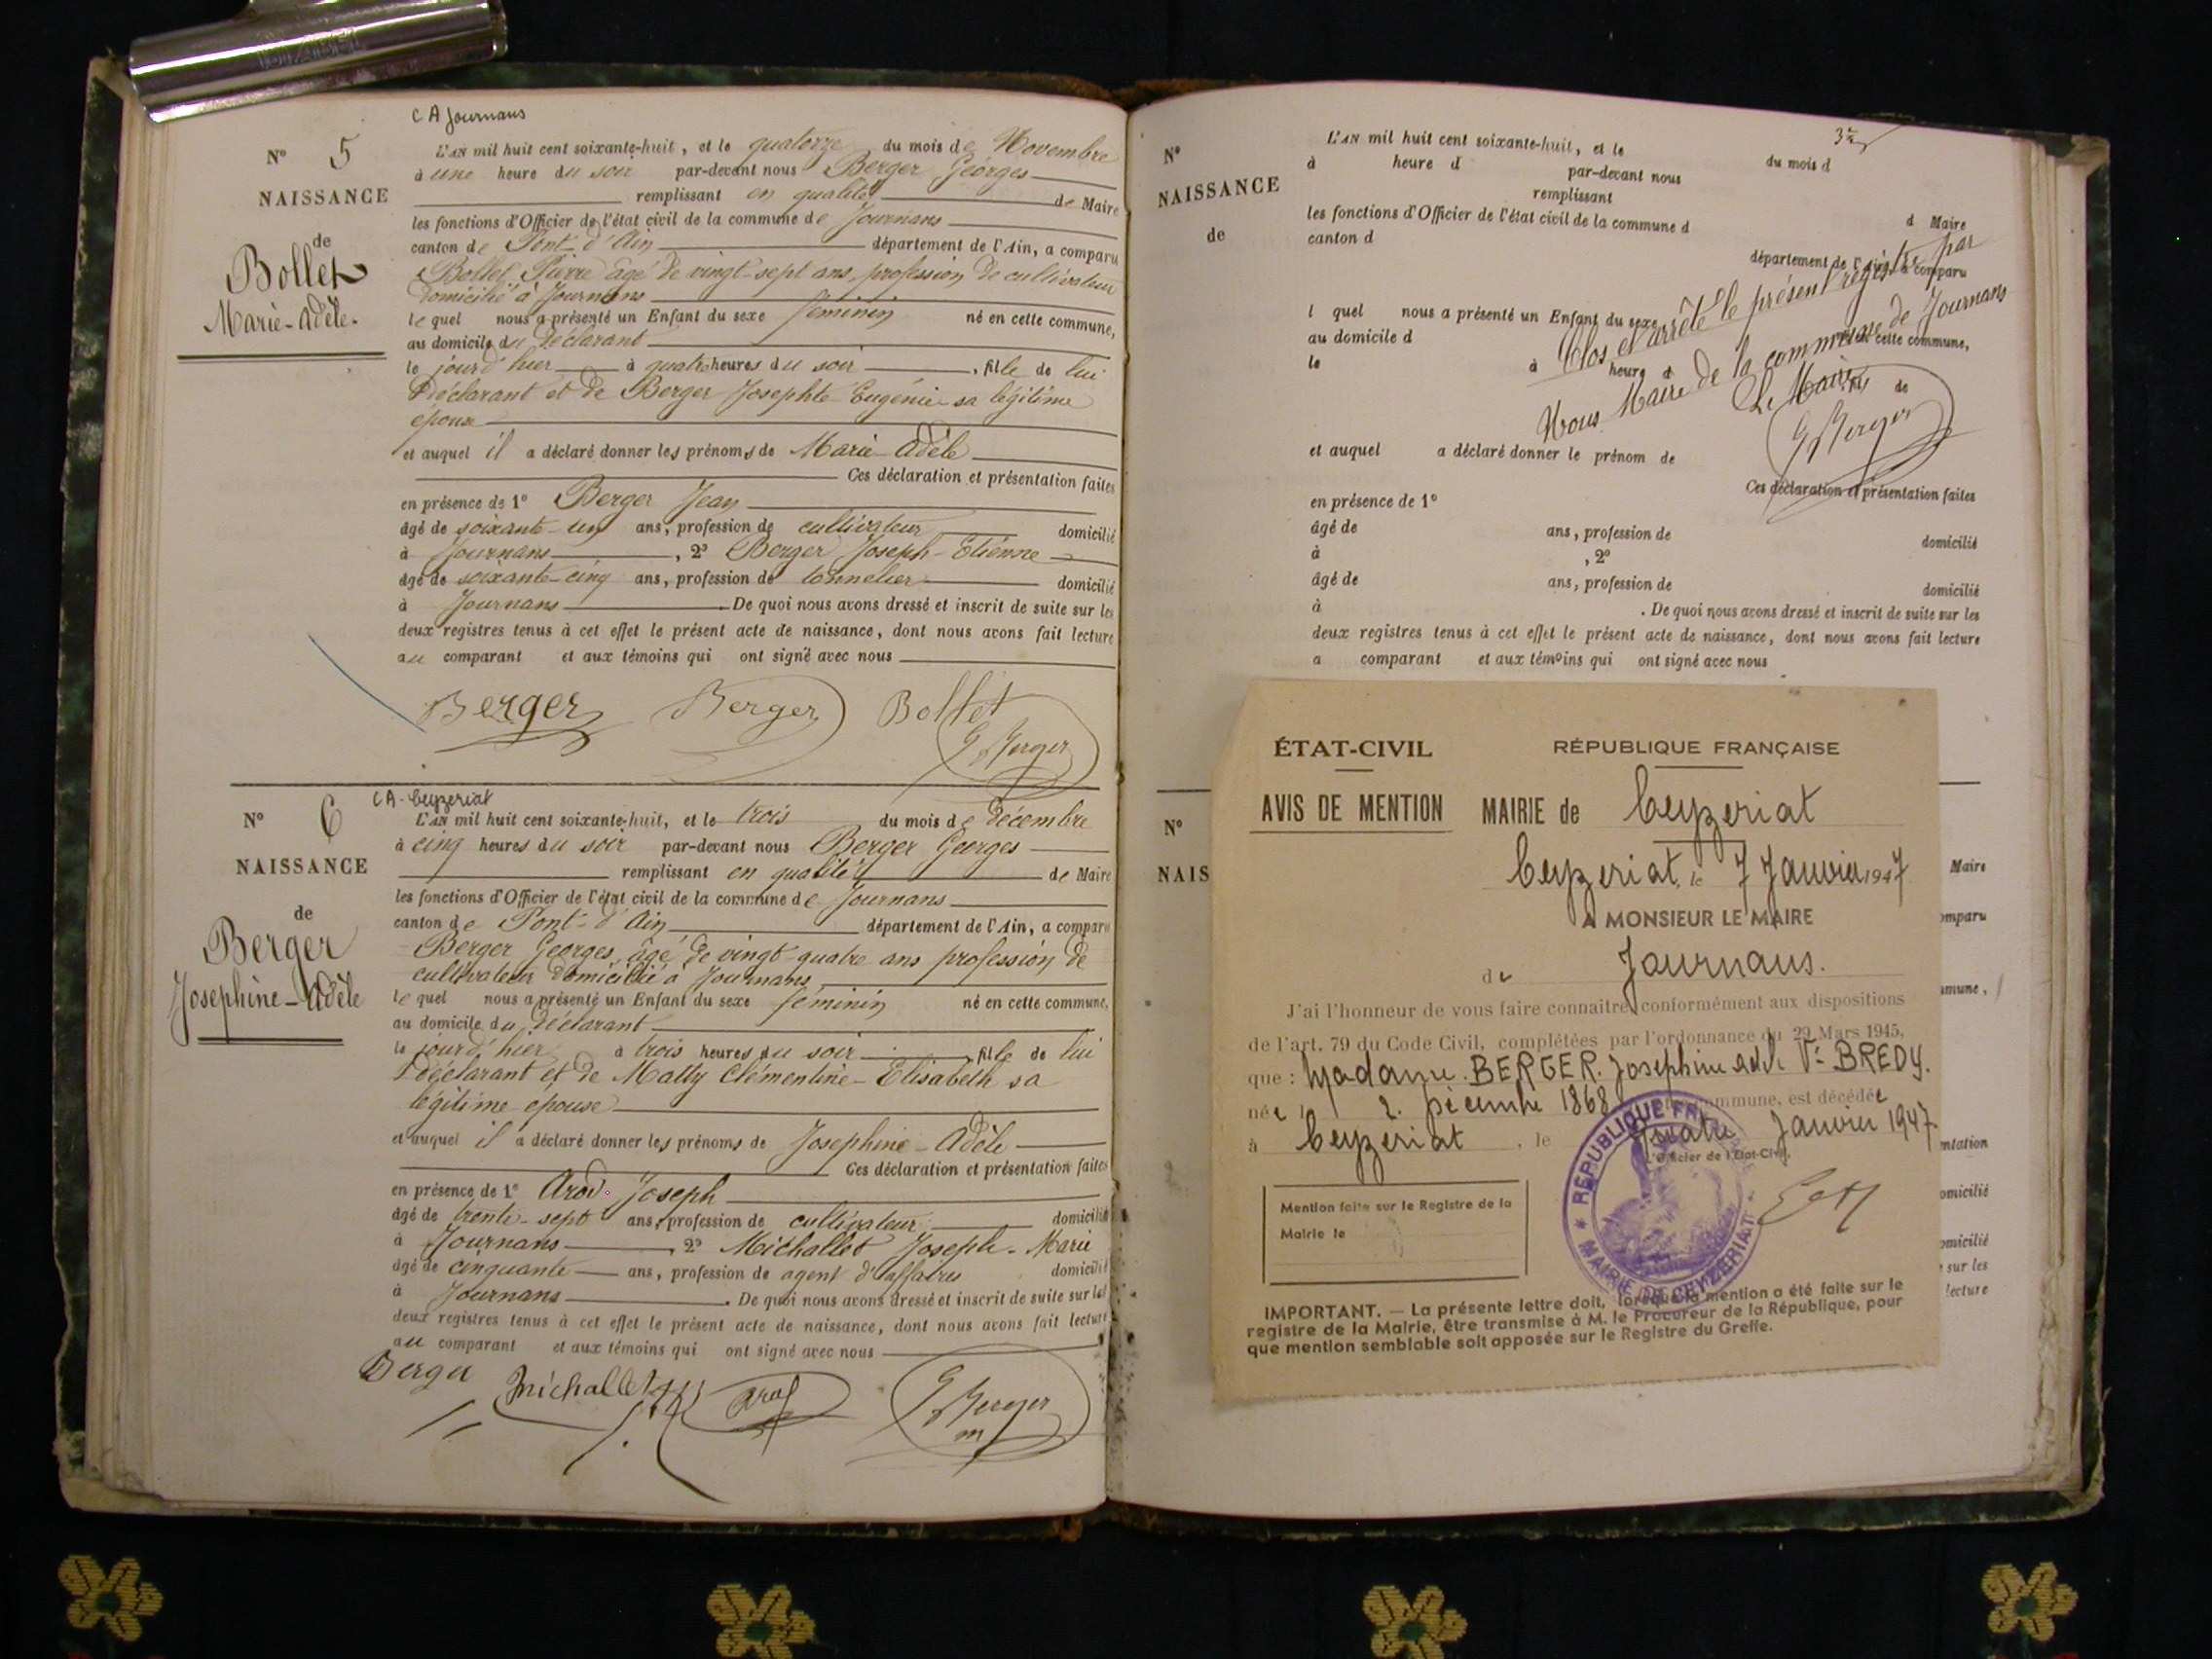 C A Journans
N° 5
NAISSANCE
de
Bollet
Marie-Adèle.
L'AN mil huit cent soixante-huit, et le quatorze du mois de Novembre
à une heure du soir par-devant nous Berger Georges
remplissant en qualité de Maire
les fonctions d'Officier de l'état civil de la commune de Journans
canton de Pont-d'Ain département de l'Ain, a comparu
Bollet Pierre âgé de vingt-sept ans, profession de cultivateur
domicilié à Journans
lequel nous a présenté un Enfant du sexe féminin né en cette commune,
au domicile du déclarant
le jour d'hier à quatre heures du soir, fille de lui
déclarant et de Berger Josephte Eugénie sa légitime
épouse
et auquel il a déclaré donner les prénoms de Marie-Adèle
Ces déclaration et présentation faites
en présence de 1° Berger Jean
âgé de soixante-un ans, profession de cultivateur domicilié
à Journans, 2° Berger Joseph-Etienne
âgé de soixante-cinq ans, profession de tonnelier domicilié
à Journans. De quoi nous avons dressé et inscrit de suite sur les
deux registres tenus à cet effet le présent acte de naissance, dont nous avons fait lecture
au comparant et aux témoins qui ont signé avec nous
Berger Berger Bollet
G Berger
C A - Ceyzeriat
N° 6
NAISSANCE
de
Berger
Josephine-Adèle
L'AN mil huit cent soixante-huit, et le trois du mois de décembre
à cinq heures du soir par-devant nous Berger Georges
remplissant en qualité de Maire
les fonctions d'Officier de l'état civil de la commune de Journans
canton de Pont-d'Ain département de l'Ain, a comparu
Berger Georges, âgé de vingt-quatre ans profession de
cultivateur domicilié à Journans
lequel nous a présenté un Enfant du sexe féminin né en cette commune,
au domicile du déclarant
le jour d'hier à trois heures du soir, fille de lui
déclarant et de Matty Clémentine-Elisabeth sa
légitime épouse
et auquel il a déclaré donner les prénoms de Josephine-Adèle
Ces déclaration et présentation faites
en présence de 1° Arod Joseph
âgé de trente-sept ans, profession de cultivateur domicilié
à Journans, 2° Michallet Joseph-Marie
âgé de cinquante ans, profession de agent d'affaires domicilié
à Journans. De quoi nous avons dressé et inscrit de suite sur les
deux registres tenus à cet effet le présent acte de naissance, dont nous avons fait lecture
au comparant et aux témoins qui ont signé avec nous
Berger Michallet Arod G Berger
m
N°
NAISSANCE
de
L'AN mil huit cent soixante-huit, et le du mois d
à heure d par-devant nous
remplissant
les fonctions d'Officier de l'état civil de la commune d d Maire
canton d
département de l'Ain, a comparu
Clos et arrêté le présent registre par
Nous Maire de la commune de Journans
Le Maire
G Berger
l quel nous a présenté un Enfant du sexe né en cette commune,
au domicile d
le à heure d de
et auquel a déclaré donner le prénom de
Ces déclaration et présentation faites
en présence de 1°
âgé de ans, profession de domicilié
à , 2°
âgé de ans, profession de domicilié
à . De quoi nous avons dressé et inscrit de suite sur les
deux registres tenus à cet effet le présent acte de naissance, dont nous avons fait lecture
a comparant et aux témoins qui ont signé avec nous
N°
NAIS
Maire
omparu
mmune,
ntation
omicilié
omicilié
sur les
lecture
ÉTAT-CIVIL
RÉPUBLIQUE FRANÇAISE
AVIS DE MENTION
MAIRIE de Ceyzeriat
Ceyzeriat, le 7 Janvier 1947
A MONSIEUR LE MAIRE
de Journans.
J'ai l'honneur de vous faire connaître, conformément aux dispositions
de l'art. 79 du Code Civil, complétées par l'ordonnance du 29 Mars 1945,
que : Madame BERGER. Josephine Adèle Vve BREDY.
née l 2. Décembre 1868 commune, est décédée
à Ceyzériat, le quatre Janvier 1947
L'Officier de l'Etat-Civil,
RÉPUBLIQUE FRANÇAISE
MAIRIE DE CEYZERIAT
Mention faite sur le Registre de la
Mairie le
IMPORTANT. — La présente lettre doit, lorsque la mention a été faite sur le
registre de la Mairie, être transmise à M. le Procureur de la République, pour
que mention semblable soit apposée sur le Registre du Greffe.